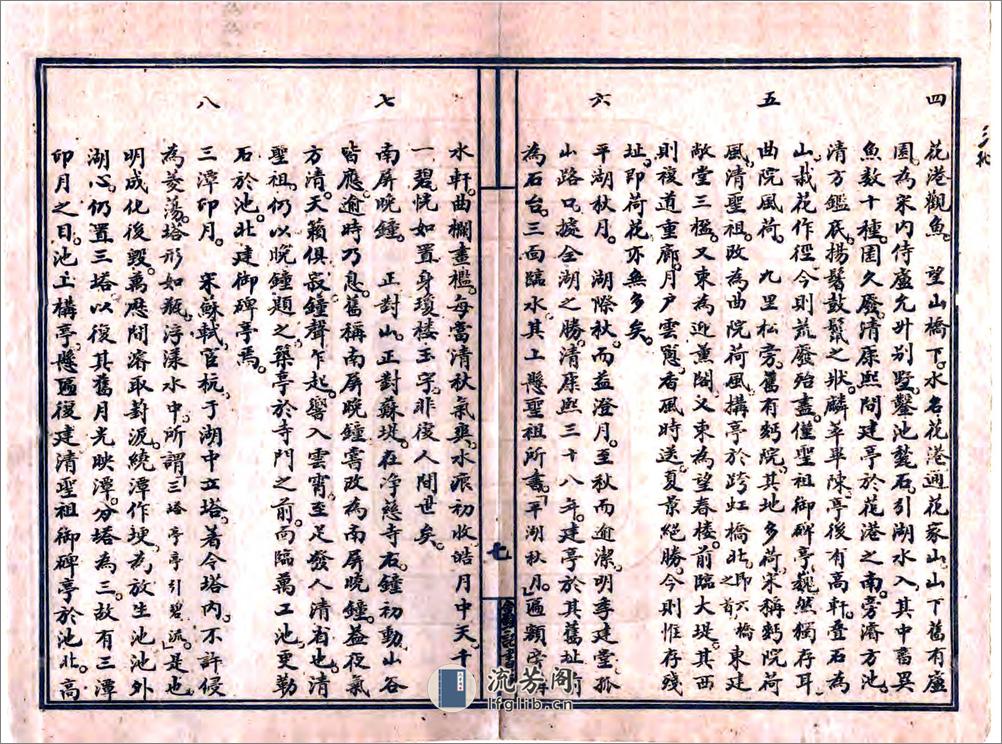 三北
四
花港觀魚。 望山橋下。水名花港。通花家山。山下舊有盧
園。為宋內侍盧允升別墅。鑿池甃石。引湖水入。其中畜異
魚數十種。園久廢。清康熙間建亭於花港之南。旁濬方池。
清方鑑底。揚鬐鼓鬣之狀。麟萃畢陳。亭後有高軒。疊石為
山。栽花作徑。今則荒廢殆盡。僅聖祖御碑亭。巍然獨存耳。
五
曲院風荷。 九里松旁。舊有麴院。其地多荷。宋稱麴院荷
風。清聖祖。改為曲院荷風。搆亭於跨虹橋北。即六橋之首。東建
敞堂三楹。又東為迎薰閣。又東為望春楼。前臨大堤。其西
則複道重廊。月戶雲窗。香風時送。夏景絕勝。今則惟存殘
址。即荷花亦無多矣。
六
平湖秋月。 湖際秋而益澄。月至秋而逾潔。明季建堂孤
山路口。擬全湖之勝。清康熙三十八年。建亭於其舊址。前
為石台。三面臨水。其上懸聖祖所書。「平湖秋月。」匾額。旁
水軒。曲欄畫檻。每當清秋氣爽。水痕初收。皓月中天。千
一碧。恍如置身瓊楼玉宇。非復人間世矣。
七
南屏晚鐘。 正對山。正對蘇堤。在淨慈寺右。鐘初動。山谷
皆應。逾時乃息。舊稱南屏晚鐘。嘗改為南屏曉鐘。蓋夜氣
方清。天籟俱寂。鐘聲乍起。響入雲霄。至足發人清省也。清
聖祖。仍以晚鐘題之。築亭於寺門之前。面臨萬工池。更勒
石於池。北建御碑亭焉。
八
三潭印月。 宋蘇軾。官杭。于湖中立塔。著令塔內。不許侵
為菱蕩。塔形如瓶。浮漾水中。所謂「三塔亭亭引碧流」是也
明成化後毀。萬曆間濬取葑泥。繞潭作埂。為放生池。池外
湖心。仍置三塔。以復其舊。月光映潭。分塔為三。故有三潭
印月之目。池上構亭。懸匾。復建清聖祖御碑亭於池北。高
七
流芳阁
lfglib.cn